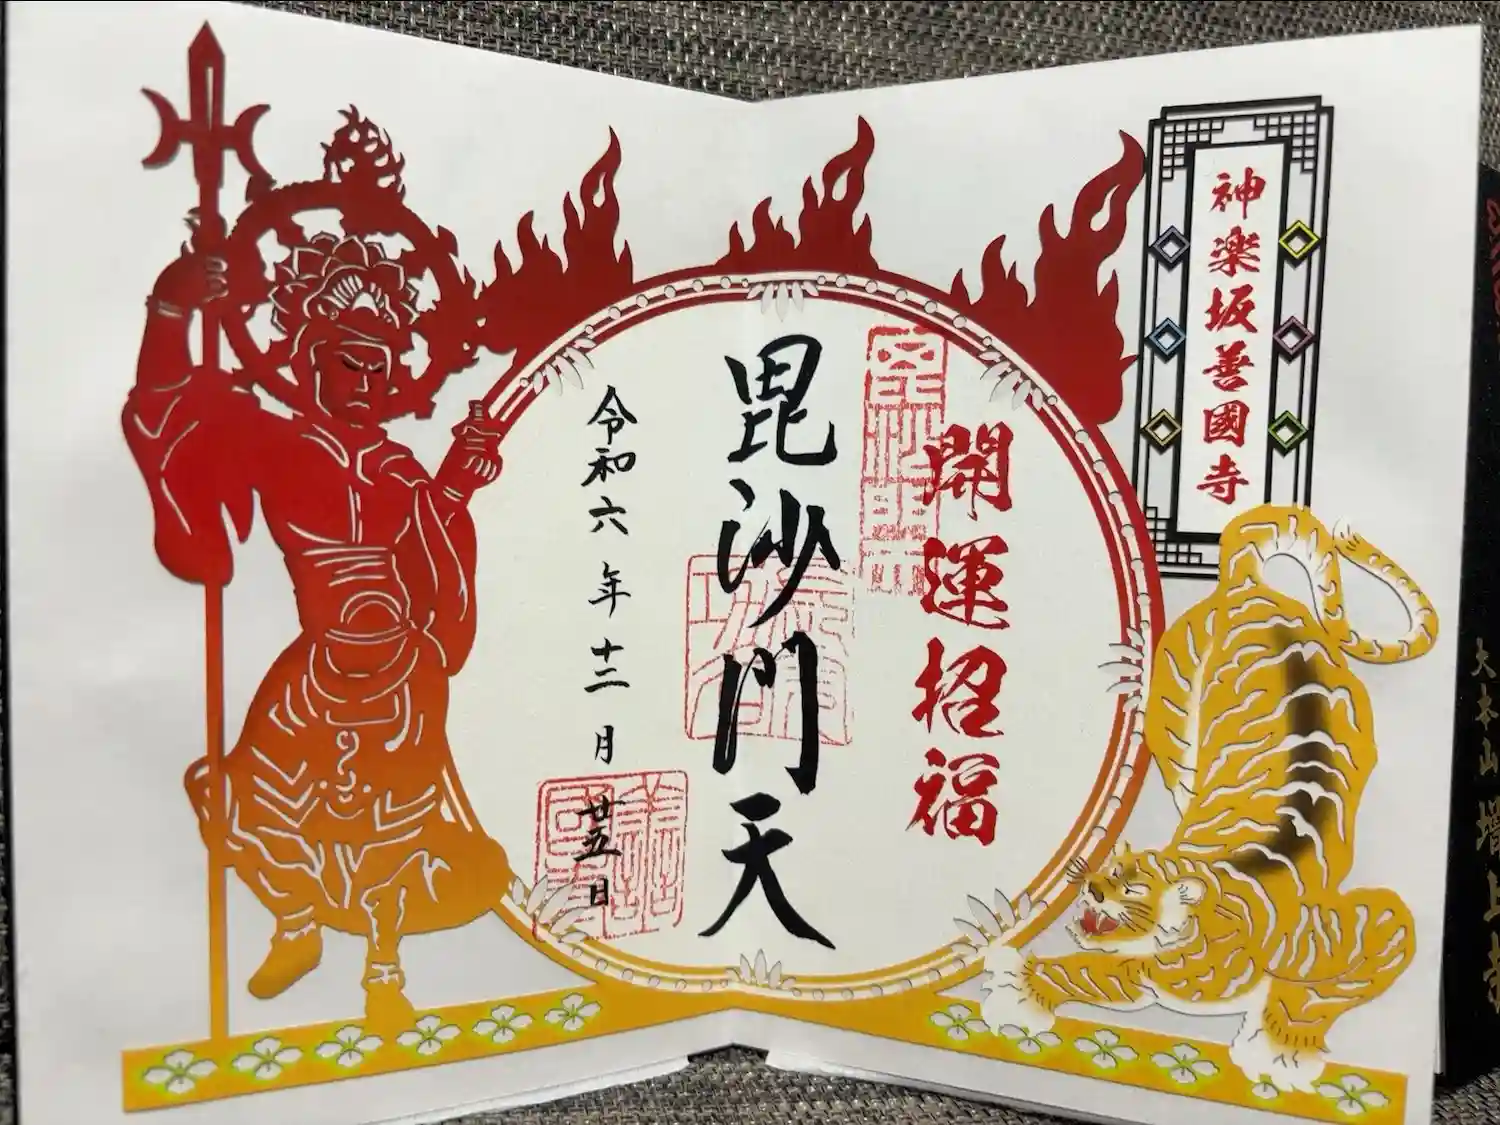 神楽坂善國寺
開運招福
毘沙門天
令和六年十二月廿五日
善國寺
大本山増上寺